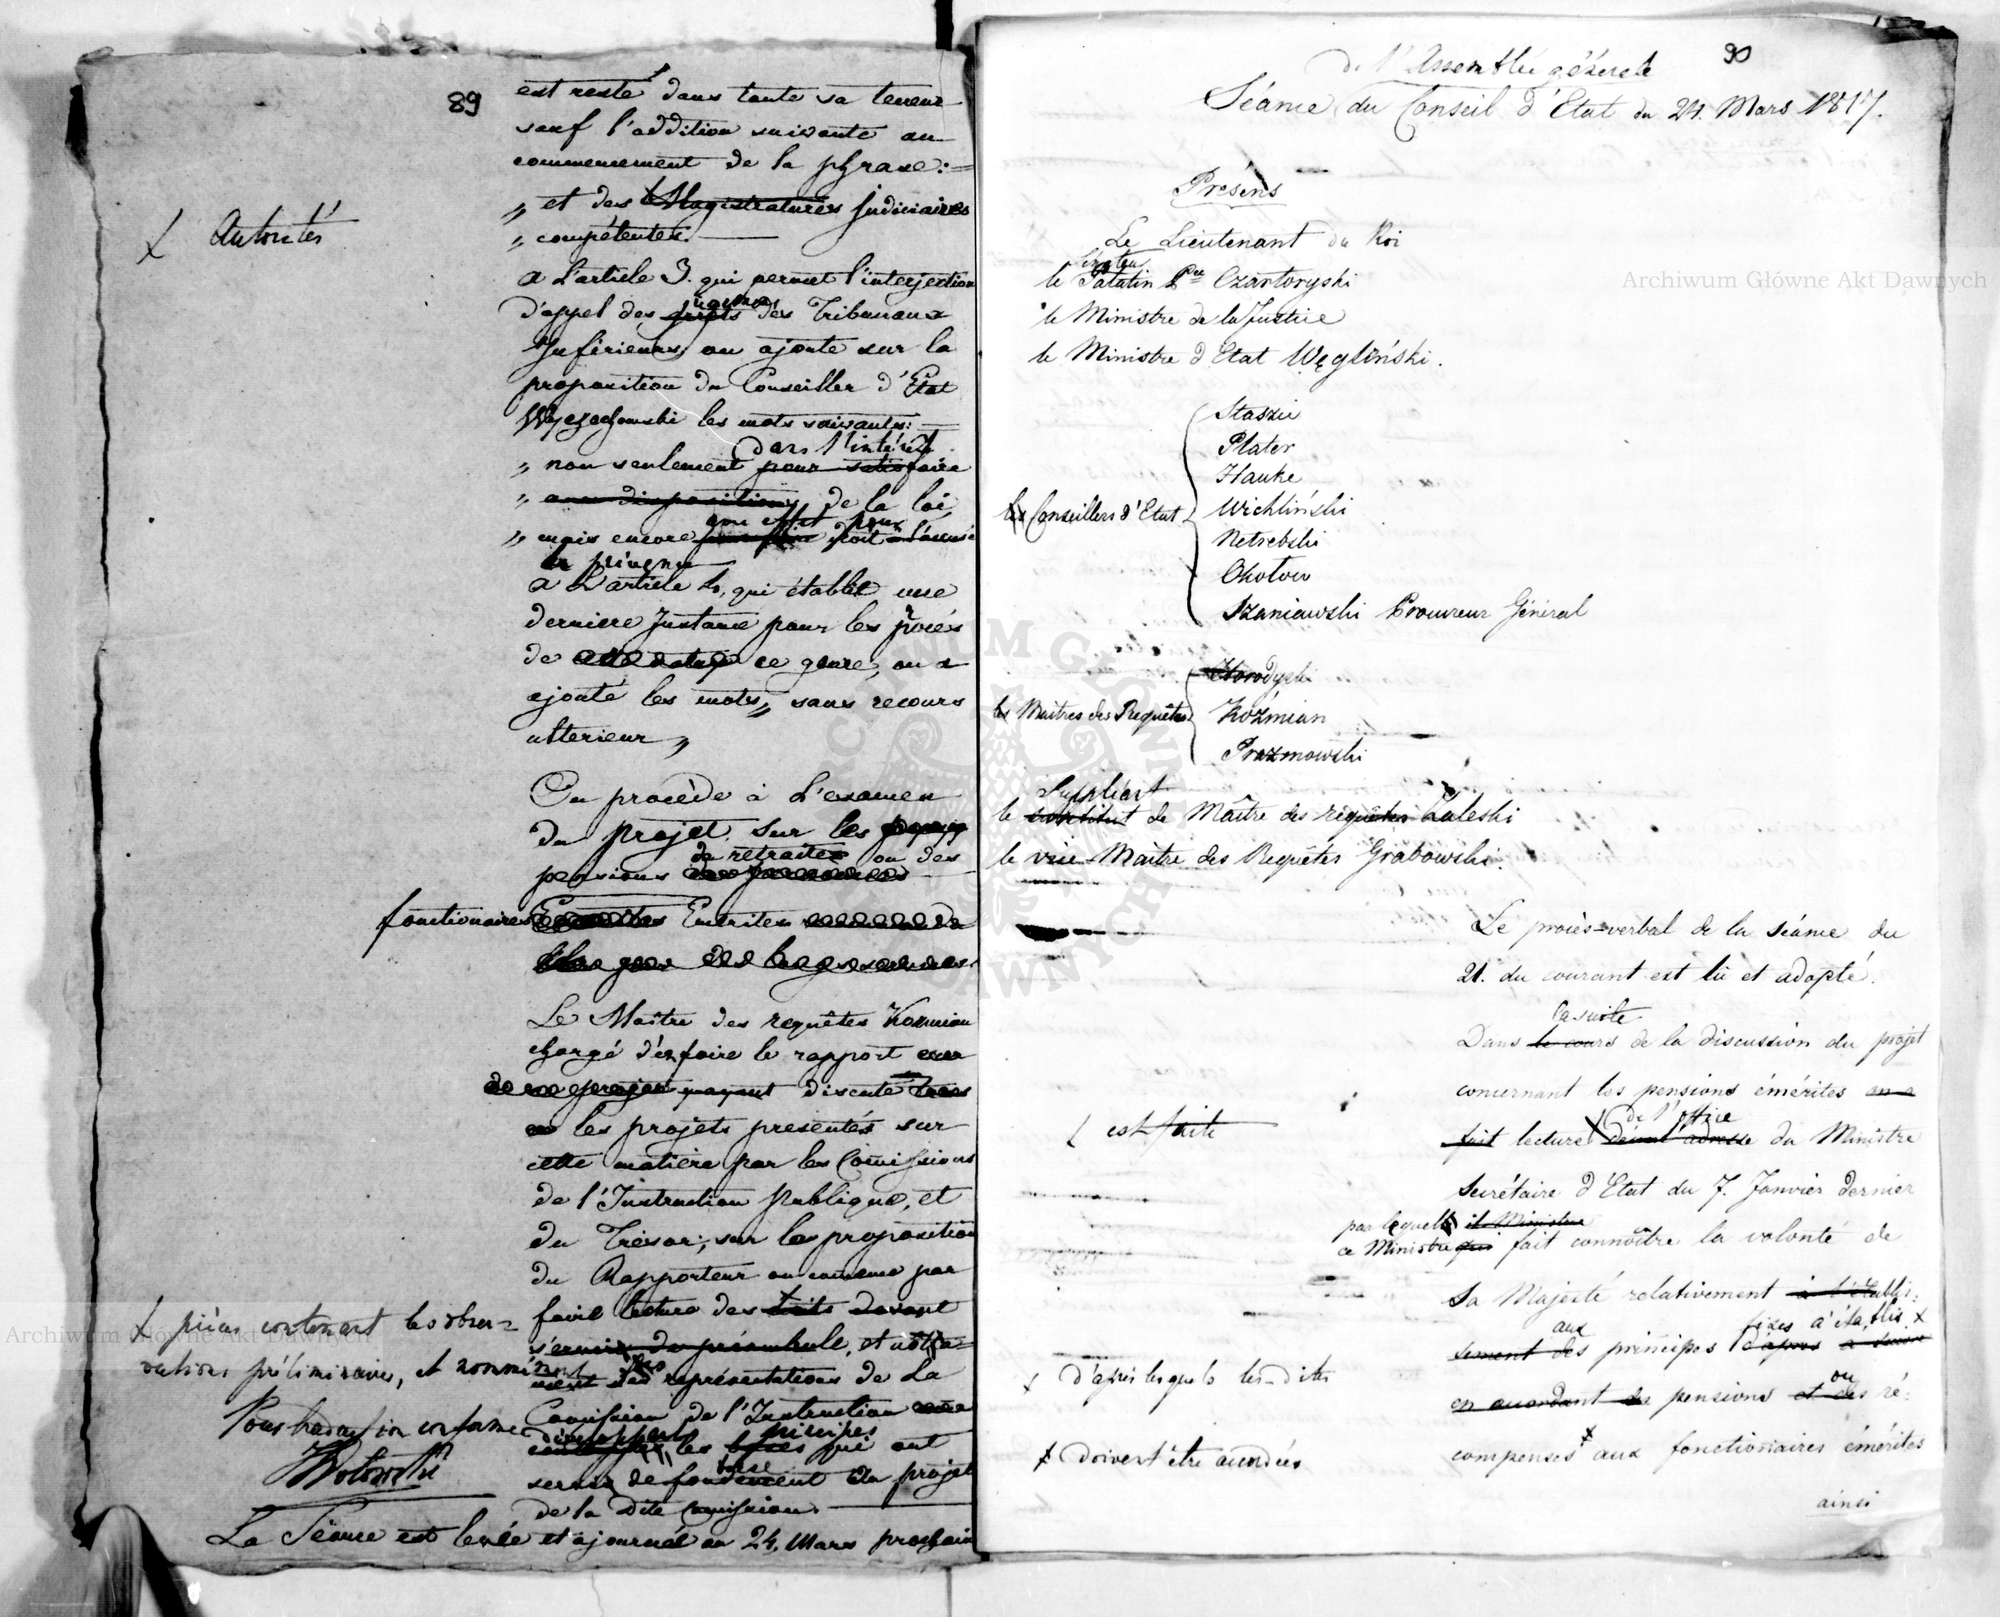 89
est resté dans toute sa teneur
sauf l'addition suivante au
commencement de la phrase:=
„ et des Magistratures judiciaires
„ compétentes.
X Autorités
a L'article 3. qui permet l'interjection
d'appel des des Tribunaux
Inferieurs, on ajoute sur la
proposition du Conseiller d'Etat
Wyczechowski les mots suivants:
dans l'intérêt
„ non seulement pour satisfaire
„ aux dispositions de la loi,
„ mais encore
a L'article 4, qui établit une
derniere Instance pour les procès
de ce genre, on a
ajouté les mots „ sans recours
ulterieur „
On procède à L'examen
du projet sur les
de retraites ou des
pensions
fonctionaires Emerites
Le Maître des requêtes Kozmian
chargé d'en faire le rapport
ayant discuté
les projets presentés sur
cette matière par les Comissions
de l'Instruction Publique, et
du Trésor; sur la proposition
du Rapporteur on comence par
faire lecture des
servir de préambule, et notta=
X pièces contenant les obser=
vations préliminaires, et nommément
les représentations de la
Comission de l'Instruction
les principes qui ont
servi de fondement du projet
base
de la dite Comission.
Pour traduction conforme
La Séance est levée et ajournée au 24. Mars prochain
90
de l'Assemblée générale
Séance du Conseil d'Etat du 24. Mars 1817.
Présens
Le Lieutenant du Roi
le Palatin Pce Czartoryski
le Ministre de la Justice
le Ministre d'Etat Węgliński.
les Conseillers d'Etat
Staszic
Plater
Hauke
Wichliński
Netrebski
Okołow
Szaniawski Procureur Général
les Maîtres des Requêtes
Horodyski
Koźmian
Prażmowski
Suppléant
le substitut de Maître des requêtes Zaleski
le vice-Maître des Requêtes Grabowski.
Le procès-verbal de la séance du
21. du courant est lu et adopté.
la suite
Dans le cours de la discussion du projet
concernant les pensions émérites on a
X est faite
de l'office
fait lecture du Ministre
Secrétaire d'Etat du 7. Janvier dernier
par lequel
ce Ministre qui fait connoître la volonté de
Sa Majesté relativement à l'établis=
aux fixes d'établis. X
sement des principes d'après
X d'après lesquels les-dites
ou
en accordant des pensions et des ré=
compenses X aux fonctionaires émérites
X doivent être accordées
ainsi
Archiwum Główne Akt Dawnych
Archiwum Główne Akt Dawnych
ARCHIWUM GŁÓWNE AKT DAWNYCH